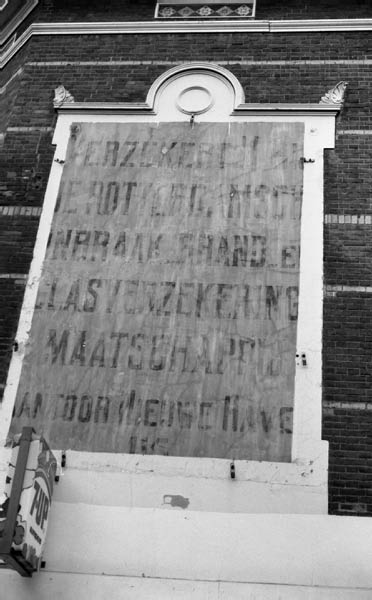 VERZEKER
DE ROTTERDAMSCH
INBRAAK BRAND E
GLASVERZEKERING
MAATSCHAPPIJ
KANTOOR NIEUWE HAVE